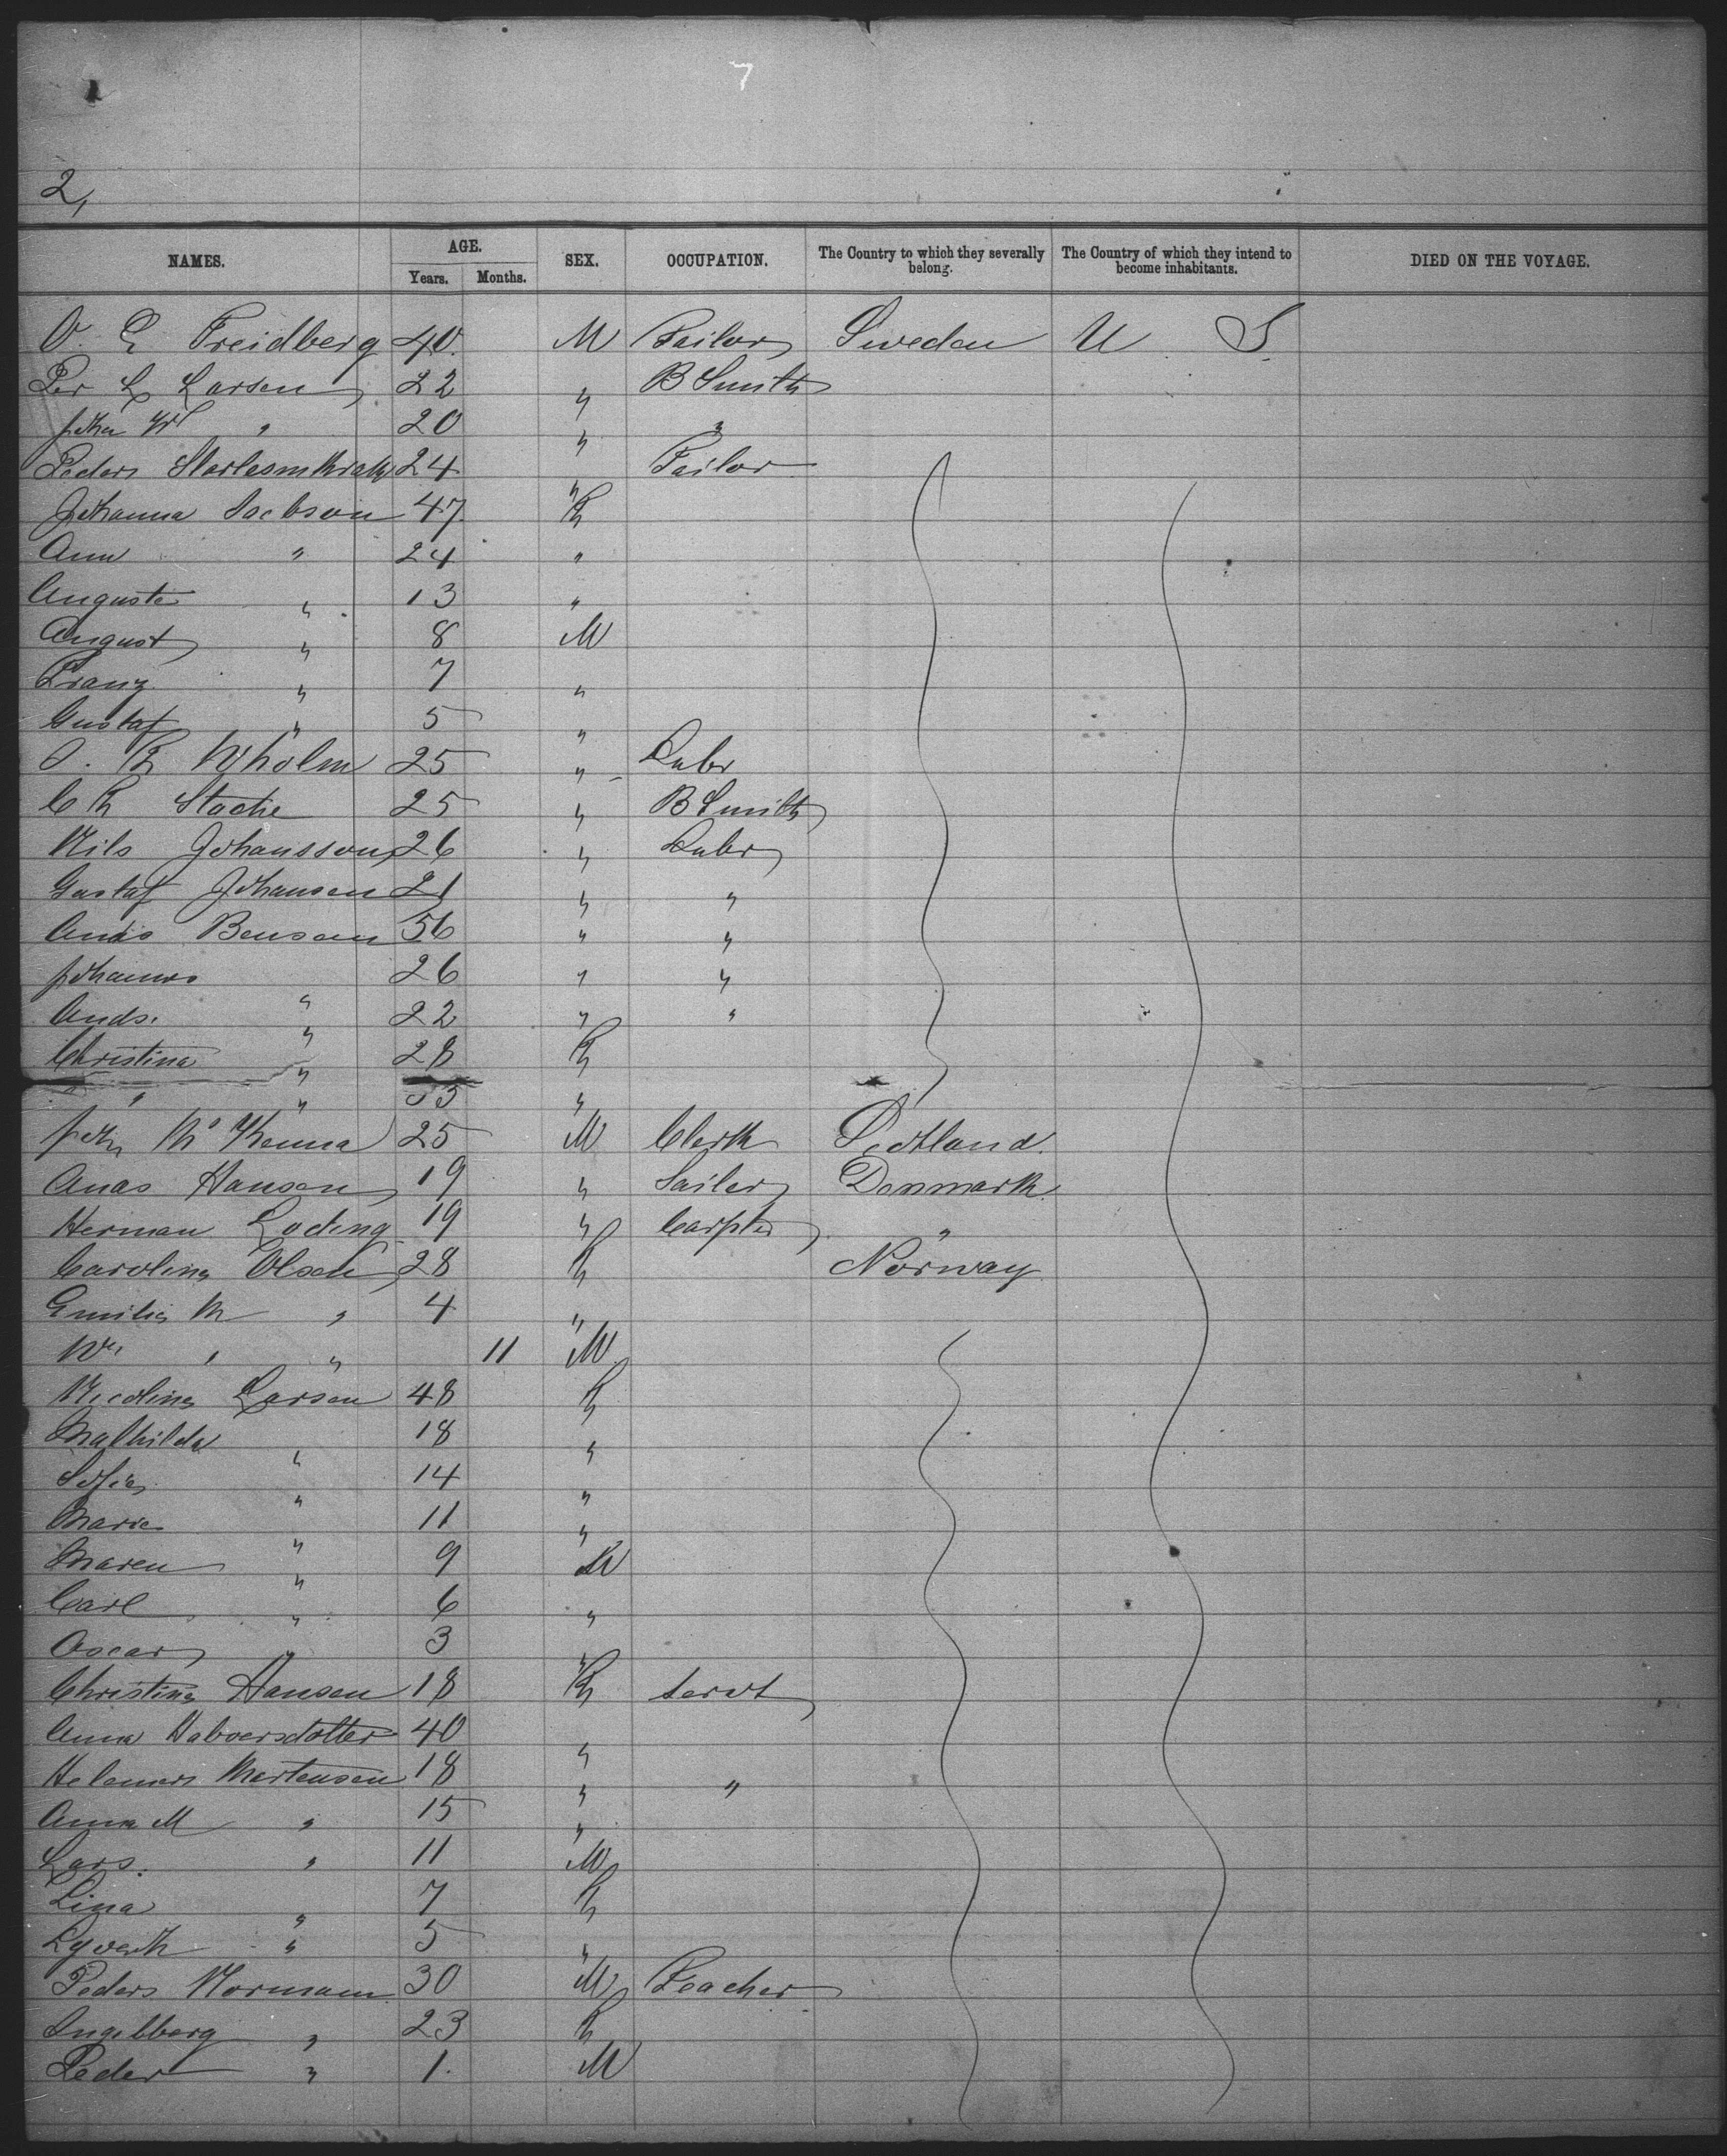 7
2,
NAMES. AGE. SEX. OCCUPATION. The Country to which they severally belong. The Country of which they intend to become inhabitants. DIED ON THE VOYAGE.
Years. Months.
O. E Freidberg 40. M Tailor Sweden U S
Per L Larsen 22 " B Smith
John W " 20 " "
Peders 24 " Tailor
Johanna Jacobson 47 F
Ann " 24 "
Auguste " 13 "
August " 8 M
Franz " 5 7 "
Gustaf " 5 "
O. F Wholm 25 " Labr
C F Stache 25 " B Smith
Nils Johansson 26 " Labr
Gustaf Johansen 21 " "
Ands Benson 56 " "
Johannes " 26 " "
Ands. " 22 " "
Christina " 28 F
" " 55 "
John McKenna 25 M Clerk Scotland.
Anas Hansen 19 " Sailor Denmark
Herman Loding 19 " Carptr "
Carolina Olsen 28 F Norway
Emilia M " 4 "
Wm " " 11 M
Larsen 48 F
Mathilda " 18 "
Sofia " 14 "
Marie " 11 "
Maren " 9 M
Carl " 6 "
Oscar " 3 "
Christina Hansen 18 F Servt
Anna Halvorsdotter 40 "
Martensen 18 " "
Anna M " 15 "
Lars. " 11 M
Lina " 7 F
" 5 "
Peders Normann 30 M Teacher
Ingelborg " 23 F
Peder " 1. M